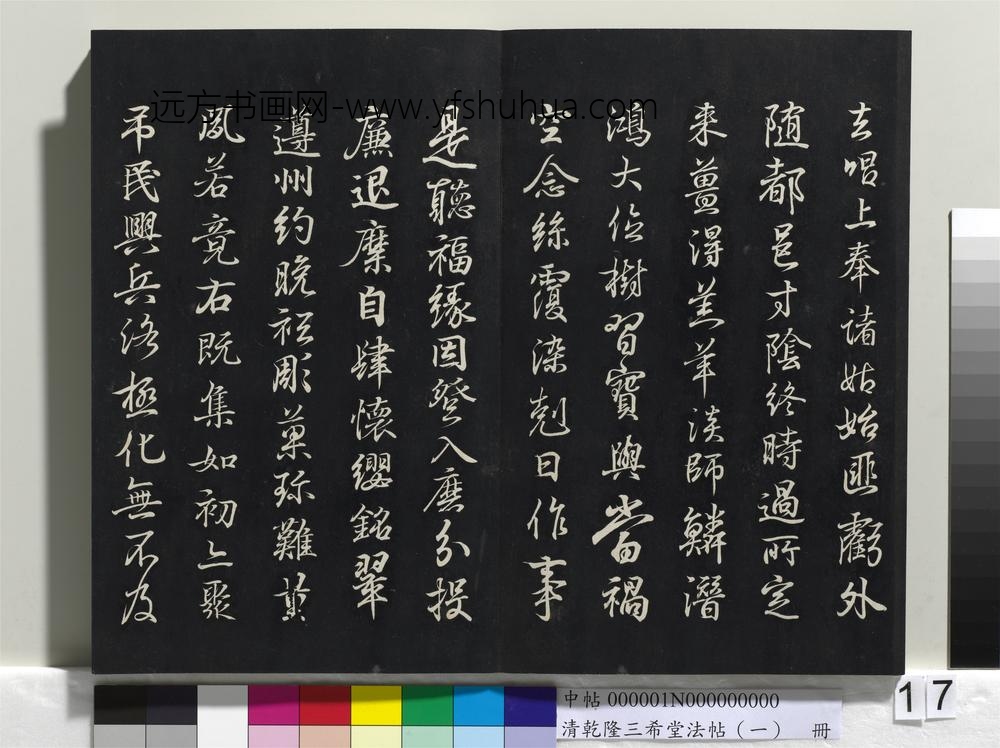 远方书画网-www.yfshuhua.com
去唱上奉諸姑始匪虧外
随都邑寸陰終時過所定
来薑得羔羊淡師鱗潛
鴻大位樹習寶與當禍
空念絲覆染剋日作事
是聽福緣因登入磨分投
廉退糜自肆懷纓銘翠
遵州約晚祗彫菓珎難
夙若竟右既集如初亦聚
吊民興兵洛極化無不及
中帖 000001N000000000
清乾隆三希堂法帖（一） 冊
17